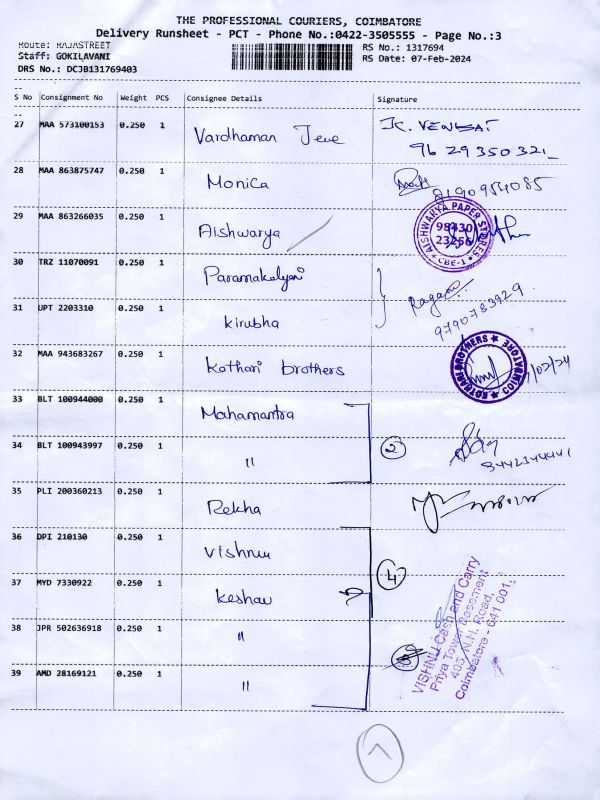 THE PROFESSIONAL COURIERS, COIMBATORE
Delivery Runsheet - PCT - Phone No.:0422-3505555 - Page No.:3
Route: RAJASTREET
RS No.: 1317694
Staff: GOKILAVANI
RS Date: 07-Feb-2024
DRS No.: DCJB131769403
S No Consignment No Weight PCS Consignee Details Signature
27 MAA 573100153 0.250 1 Vardhaman Jewe K. VENKAT
96 29 350 321
28 MAA 863875747 0.250 1 Monica 8190954085
29 MAA 863266035 0.250 1 Aishwarya
AISHWARYA PAPER STORES
98430
23256
CBE-1
30 TRZ 11070091 0.250 1 Paramakalyani
31 UPT 2203310 0.250 1 Kirubha
Ragavi
9790783929
32 MAA 943683267 0.250 1 Kothari brothers
KOTHARI BROTHERS
COIMBATORE
/02/24
33 BLT 100944000 0.250 1 Mahamantra
2
34 BLT 100943997 0.250 1 "
35 PLI 200360213 0.250 1 Rekha
36 DPI 210130 0.250 1 Vishnu
4
37 MYD 7330922 0.250 1 Keshav
38 JPR 502636918 0.250 1 "
39 AMD 28169121 0.250 1 "
VISHNU Cash and Carry
Priya Tower Basement
405, N.H. Road,
Coimbatore - 641 001.